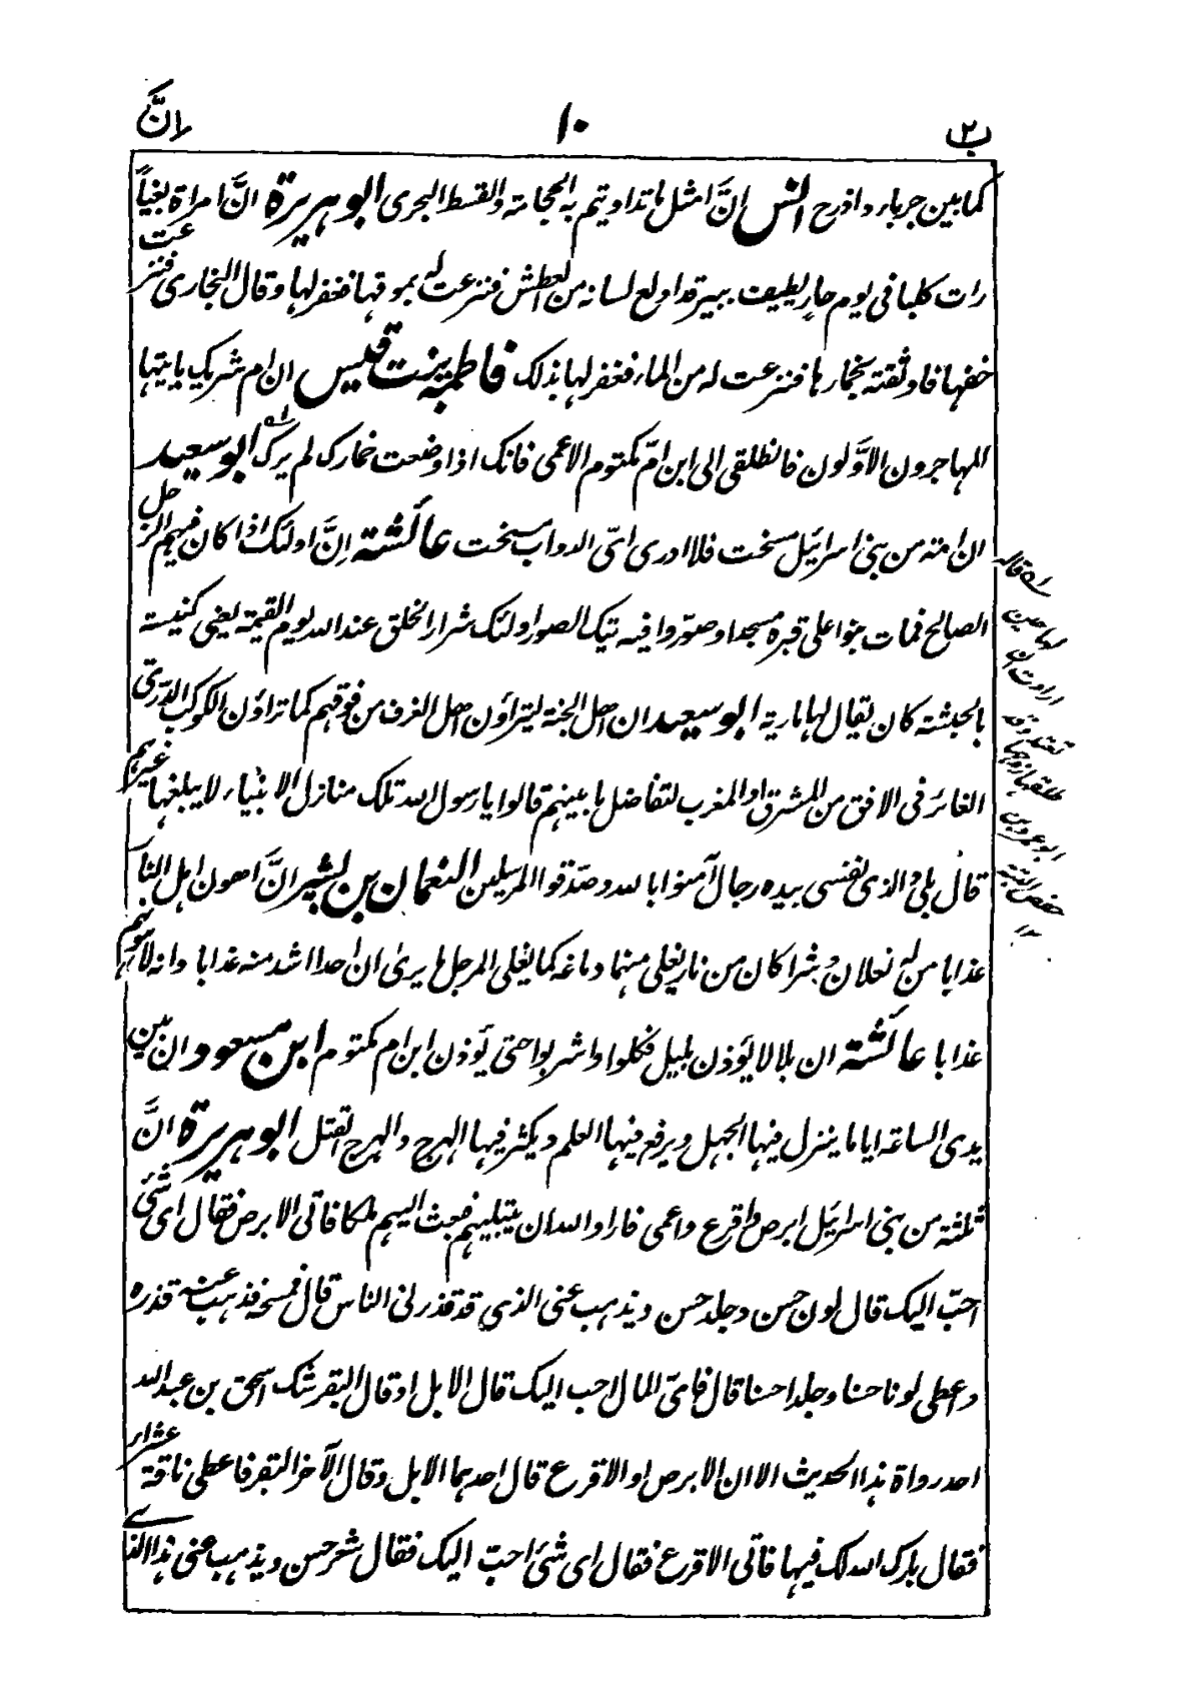 ب٢ ١٠ انَّ
كما بين جرباء واذرح انس انَّ امثل ما تداويتم به الحجامة والقسط البحرى ابو هريرة انَّ امراة بغياً
رات كلبا فى يوم حارٍ يطيف ببير قد ادلع لسانه من العطش فنزعت له بموقها فغفر لها وقال البخارى فنزعت
خفها فاوثقته بخمارها فنزعت له من الماء فغفر لها بذلك فاطمة بنت قيس ان ام شريك ياتيها
المهاجرون الاوَّلون فانطلقى الى ابن امّ مكتوم الاعمى فانك اذا وضعت خمارك لم يرك ابو سعيد
ان امة من بنى اسرائيل مسخت فلا ادرى اىّ الدواب مسخت عائشة اِنَّ اولئك اذا كان فيهم الرجل
الصالح فمات بنوا على قبره مسجدا وصوّروا فيه تيك الصور اولئك شرار الخلق عند الله يوم القيمة يعنى كنيسة
بالحبشة كان يقال لها مارية ابو سعيد ان اهل الجنة ليتراؤن اهل الغرف من فوقهم كما تراؤن الكوكب الدرّىّ
الغائر فى الافق من المشرق او المغرب لتفاضل ما بينهم قالوا يا رسول الله تلك منازل الانبياء لا يبلغها غيرهم
قال بلى والذى نفسى بيده رجال آمنوا بالله وصدّقوا المرسلين النعمان بن بشير انَّ اهون اهل النار
عذابا من له نعلان وشراكان من نار يغلى منهما دماغه كما يغلى المرجل ما يرى ان احدا اشد منه عذابا وانه لاهونهم
عذابا عائشة ان بلالا يؤذن بليل فكلوا واشربوا حتى يؤذن ابن ام مكتوم ابن مسعود ان بين
يدى الساعة اياما ينزل فيها الجهل ويرفع فيها العلم ويكثر فيها الهرج والهرج القتل ابو هريرة انَّ
ثلثة من بنى اسرائيل ابرص واقرع واعمى فاراد الله ان يبتليهم فبعث اليهم ملكا فاتى الابرص فقال اى شئ
احبّ اليك قال لون حسن وجلد حسن ويذهب عنى الذى قد قذرنى الناس قال فمسحه فذهب عنه قذره
واعطى لونا حسنا وجلدا حسنا قال فاىّ المال احب اليك قال الابل او قال البقر شك اسحق بن عبد الله
احد رواة هذا الحديث الا ان الابرص او الاقرع قال احدهما الابل وقال الآخر البقر فاعطى ناقة عشراء
فقال بارك الله لك فيها فاتى الاقرع فقال اى شئ احبّ اليك فقال شعر حسن ويذهب عنى هذا الذى
قاله
لها حين
ارادت ان
تعتد وقد
طلقها زوجها
ابو عمرو بن
حفص البتة
١٢